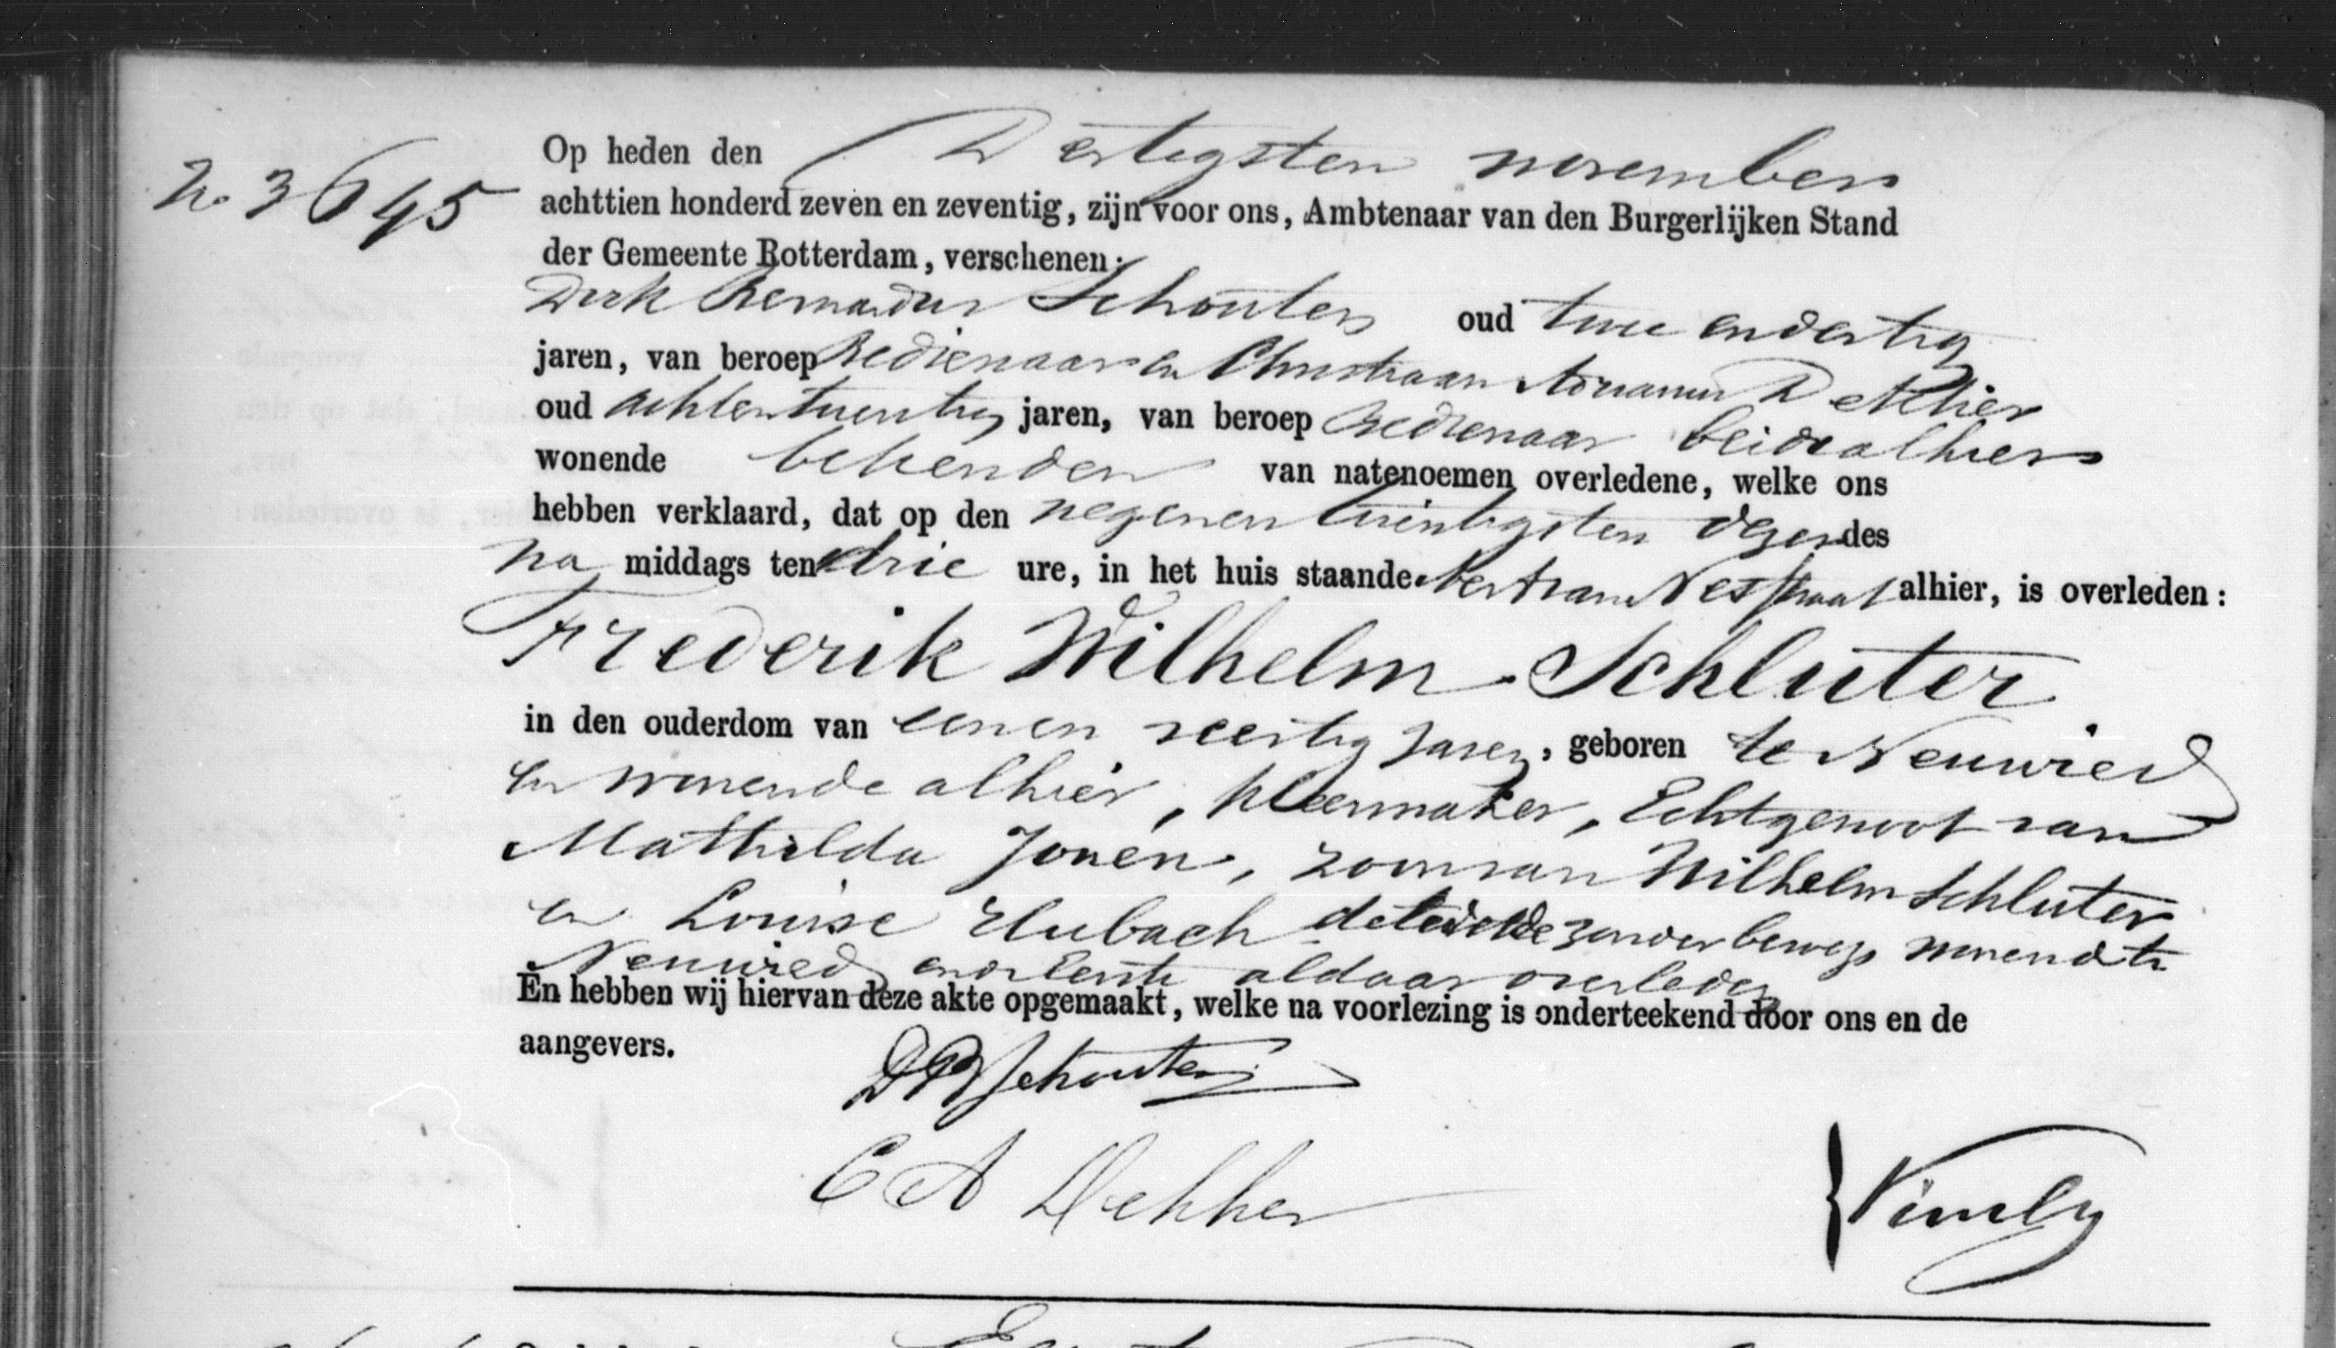 N. 3645
Op heden den Dertigsten november
achttien honderd zeven en zeventig, zijn voor ons, Ambtenaar van den Burgerlijken Stand
der Gemeente Rotterdam, verschenen:
Dirk Bernardus Schouten oud twee en dertig
jaren, van beroep Bedienaar en Christiaan Adrianus Dekker
oud acht en twintig jaren, van beroep Bedienaar beide alhier
wonende bekenden van natenoemen overledene, welke ons
hebben verklaard, dat op den negenen twintigsten dezer des
na middags ten drie ure, in het huis staande alhier, is overleden:
Frederik Wilhelm Schluter
in den ouderdom van eenen veertig jaren, geboren te Neuwied
en wonende alhier, kleermaker, Echtgenoot van
Mathilda Jonen, zoon van Wilhelm Schluter
en Louise Hubach de tweede zonder beroep wonend te
Neuwied en de eerste aldaar overleden
En hebben wij hiervan deze akte opgemaakt, welke na voorlezing is onderteekend door ons en de
aangevers.
DB Schouten
C A Dekker